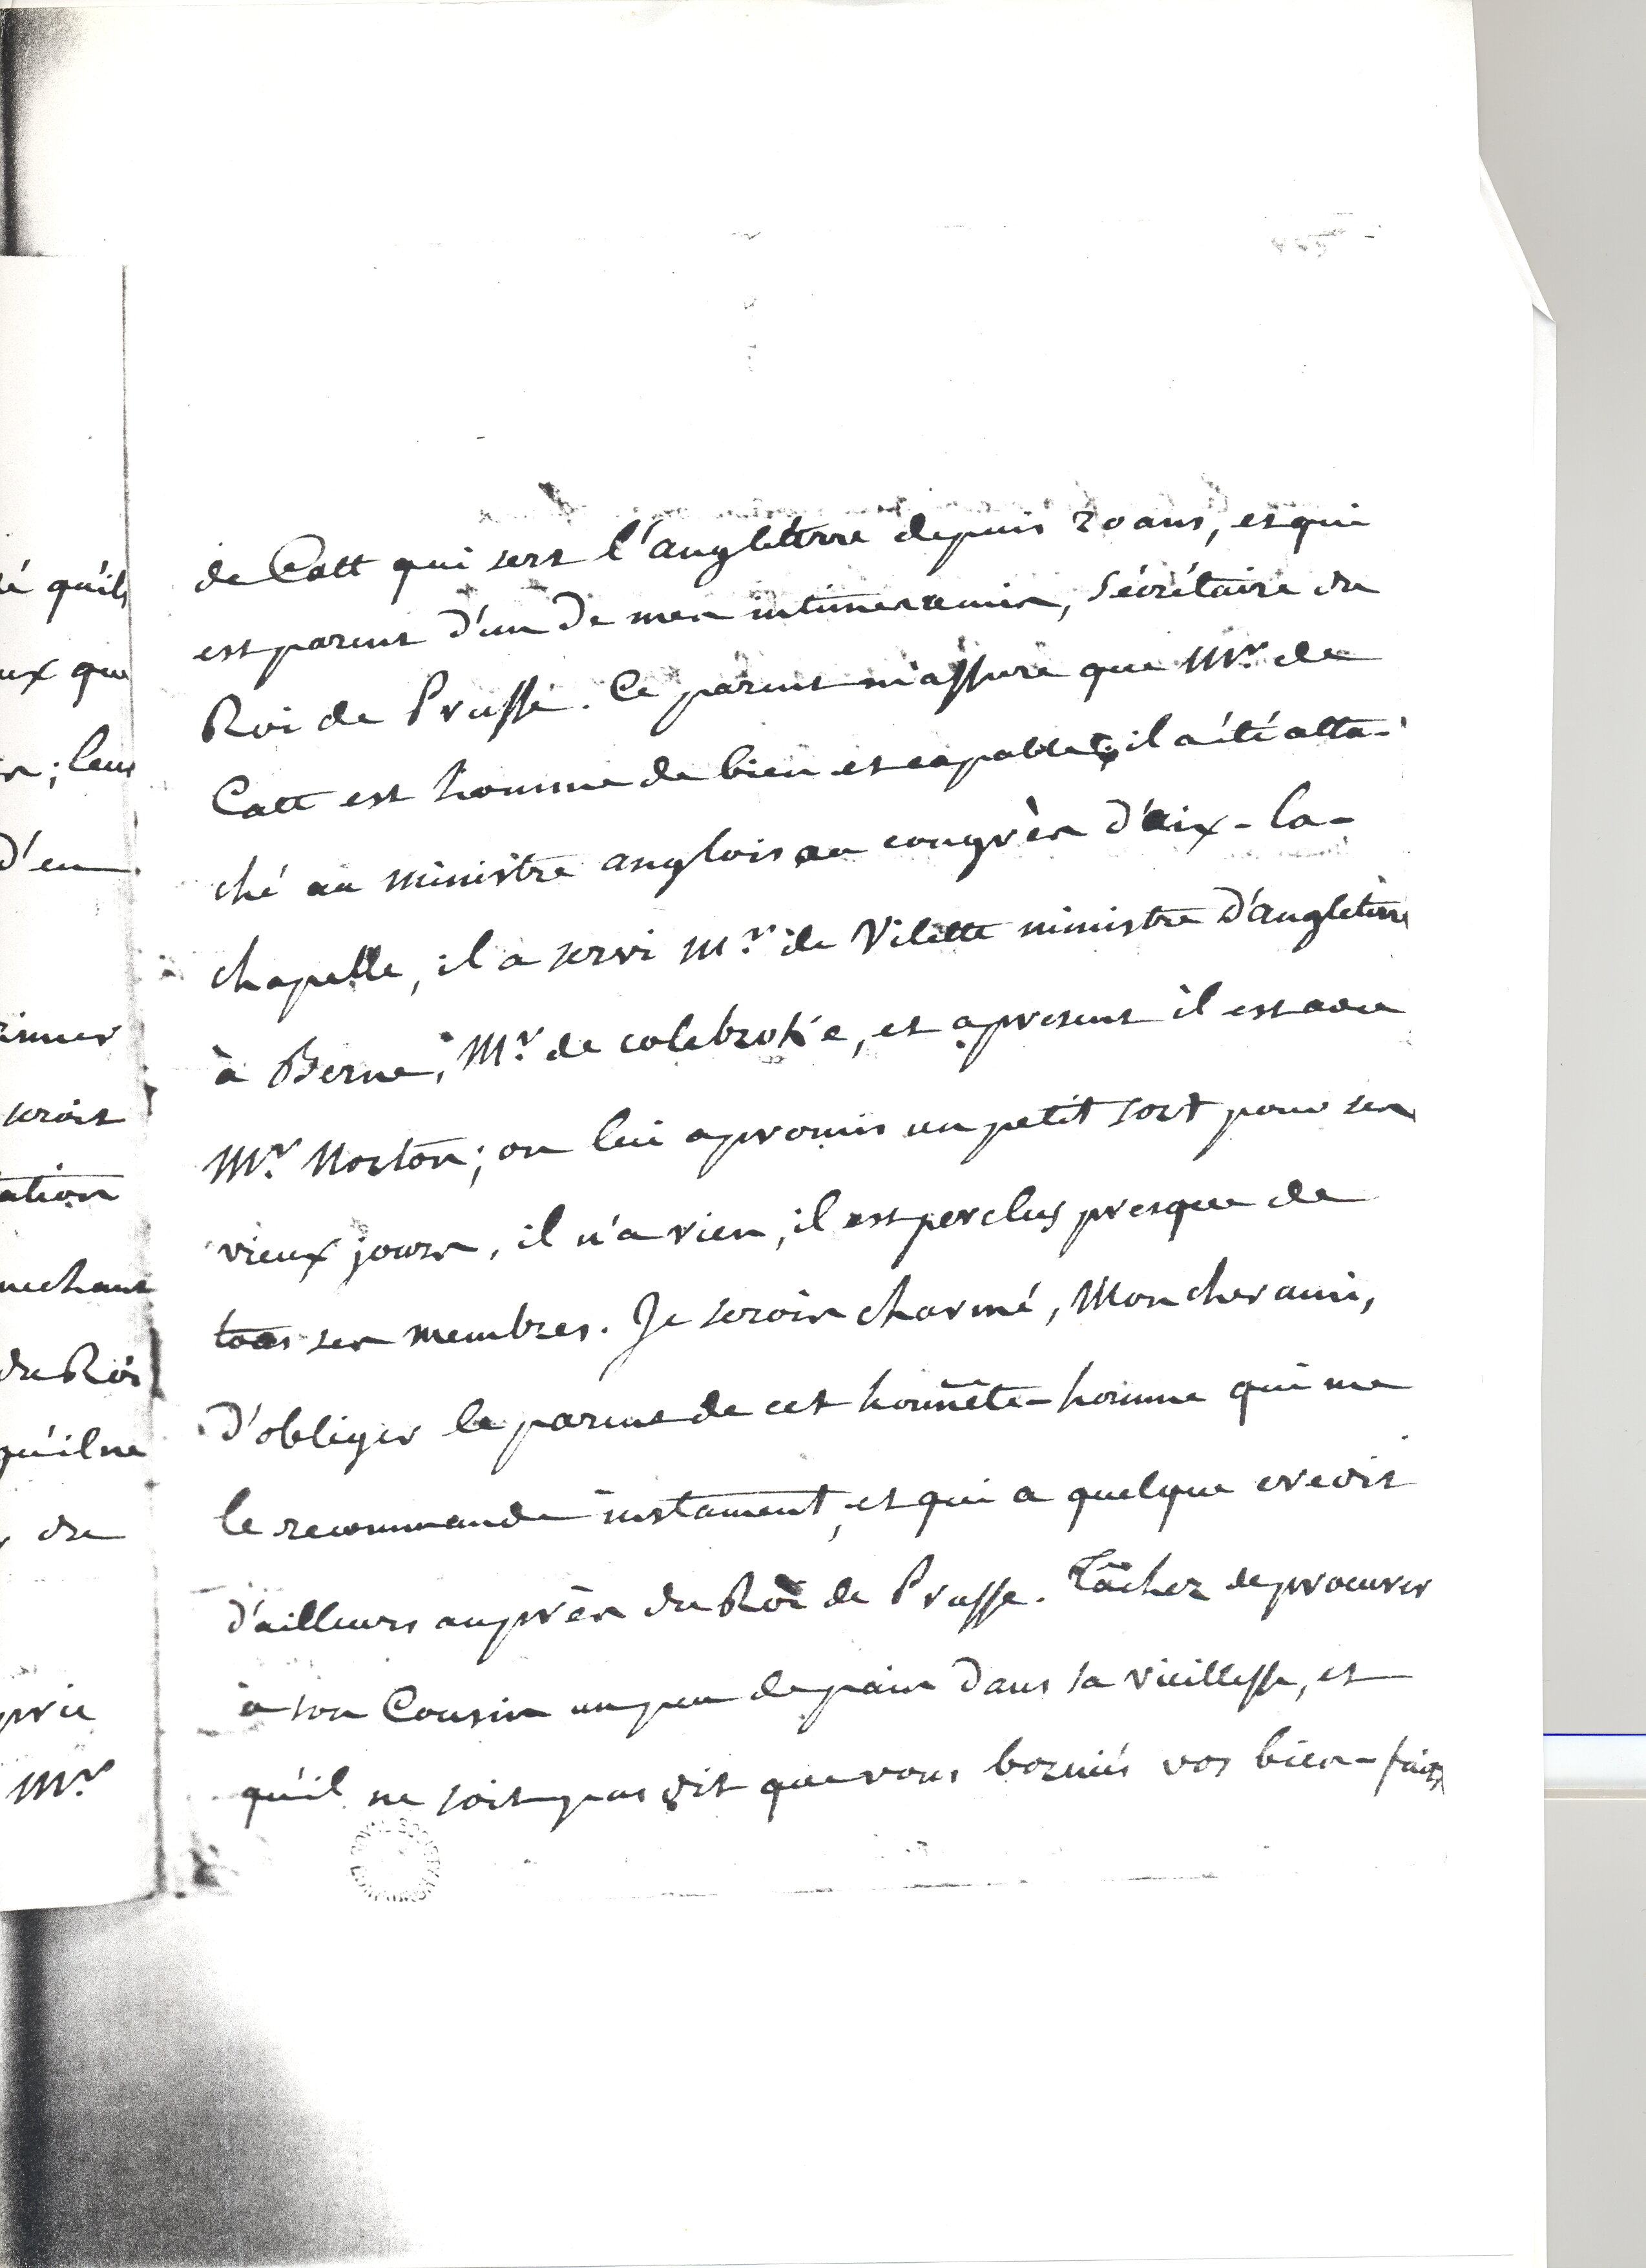 é qu'ils
ux que
; leur
d'en
rimer
serois
ation
mechant
du Roi
qu'il ne
du
prie
Mr
de Catt qui sert l'angleterre depuis 20 ans, et qui
est parent d'un de mes intimes amis, Sécrétaire du
Roi de Prusse. Ce parent m'assure que Mr. de
Catt est homme de bien et capable, il a été atta-
ché au ministre anglois au congrès d'Aix-la-
chapelle, il a servi Mr. de Vilette ministre d'angleterre
à Berne, Mr. de colebroke, et apresent il est avec
Mr. Norton; on lui a promis un petit sort pour ses
vieux jours, il n'a rien, il est perclus presque de
tous ses membres. Je serois charmé, Mon cher ami,
d'obliger le parent de cet honnête-homme qui me
le recommande instament, et qui a quelque credit
d'ailleurs auprès du Roi de Prusse. Tâchez de procurer
à son Cousin un peu de pain dans sa vieillesse, et
qu'il ne soit pas dit que vous borniés vos bien-faits
ROYAL SOCIETY LONDON